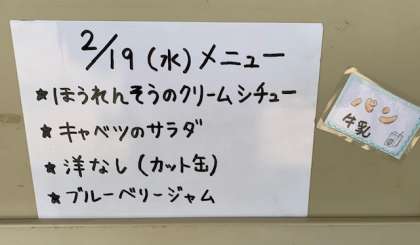 2/19(水)メニュー
★ほうれんそうのクリームシチュー
★キャベツのサラダ
★洋なし(カット缶)
★ブルーベリージャム
パン
牛乳